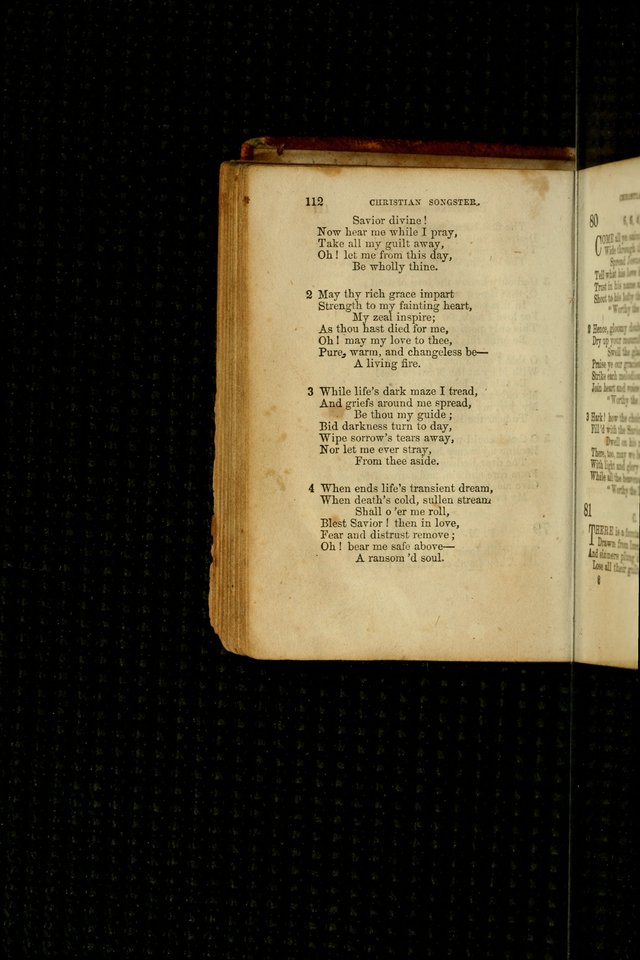 112 CHRISTIAN SONGSTER.
Savior divine!
Now hear me while I pray,
Take all my guilt away,
Oh! let me from this day,
Be wholly thine.
2 May thy rich grace impart
Strength to my fainting heart,
My zeal inspire;
As thou hast died for me,
Oh! may my love to thee,
Pure, warm, and changeless be—
A living fire.
3 While life's dark maze I tread,
And griefs around me spread,
Be thou my guide;
Bid darkness turn to day,
Wipe sorrow's tears away,
Nor let me ever stray,
From thee aside.
4 When ends life's transient dream,
When death's cold, sullen stream
Shall o'er me roll,
Blest Savior! then in love,
Fear and distrust remove;
Oh! bear me safe above—
A ransom'd soul.
80 6, 6,
COME all ye
Wide through
Spread
Tell what his love
Trust in his name
Shout to his
"Worthy the
2 Hence, gloomy
Dry up your
Swell the
Praise ye our
Strike each
Join heart and
"Worthy the
3 Hark! how the
Fill'd with the
Dwell on his
There, too, may we
With light and glory
While all the
"Worthy the
81 C.
THERE is a
Drawn from
And sinners
Lose all their
8